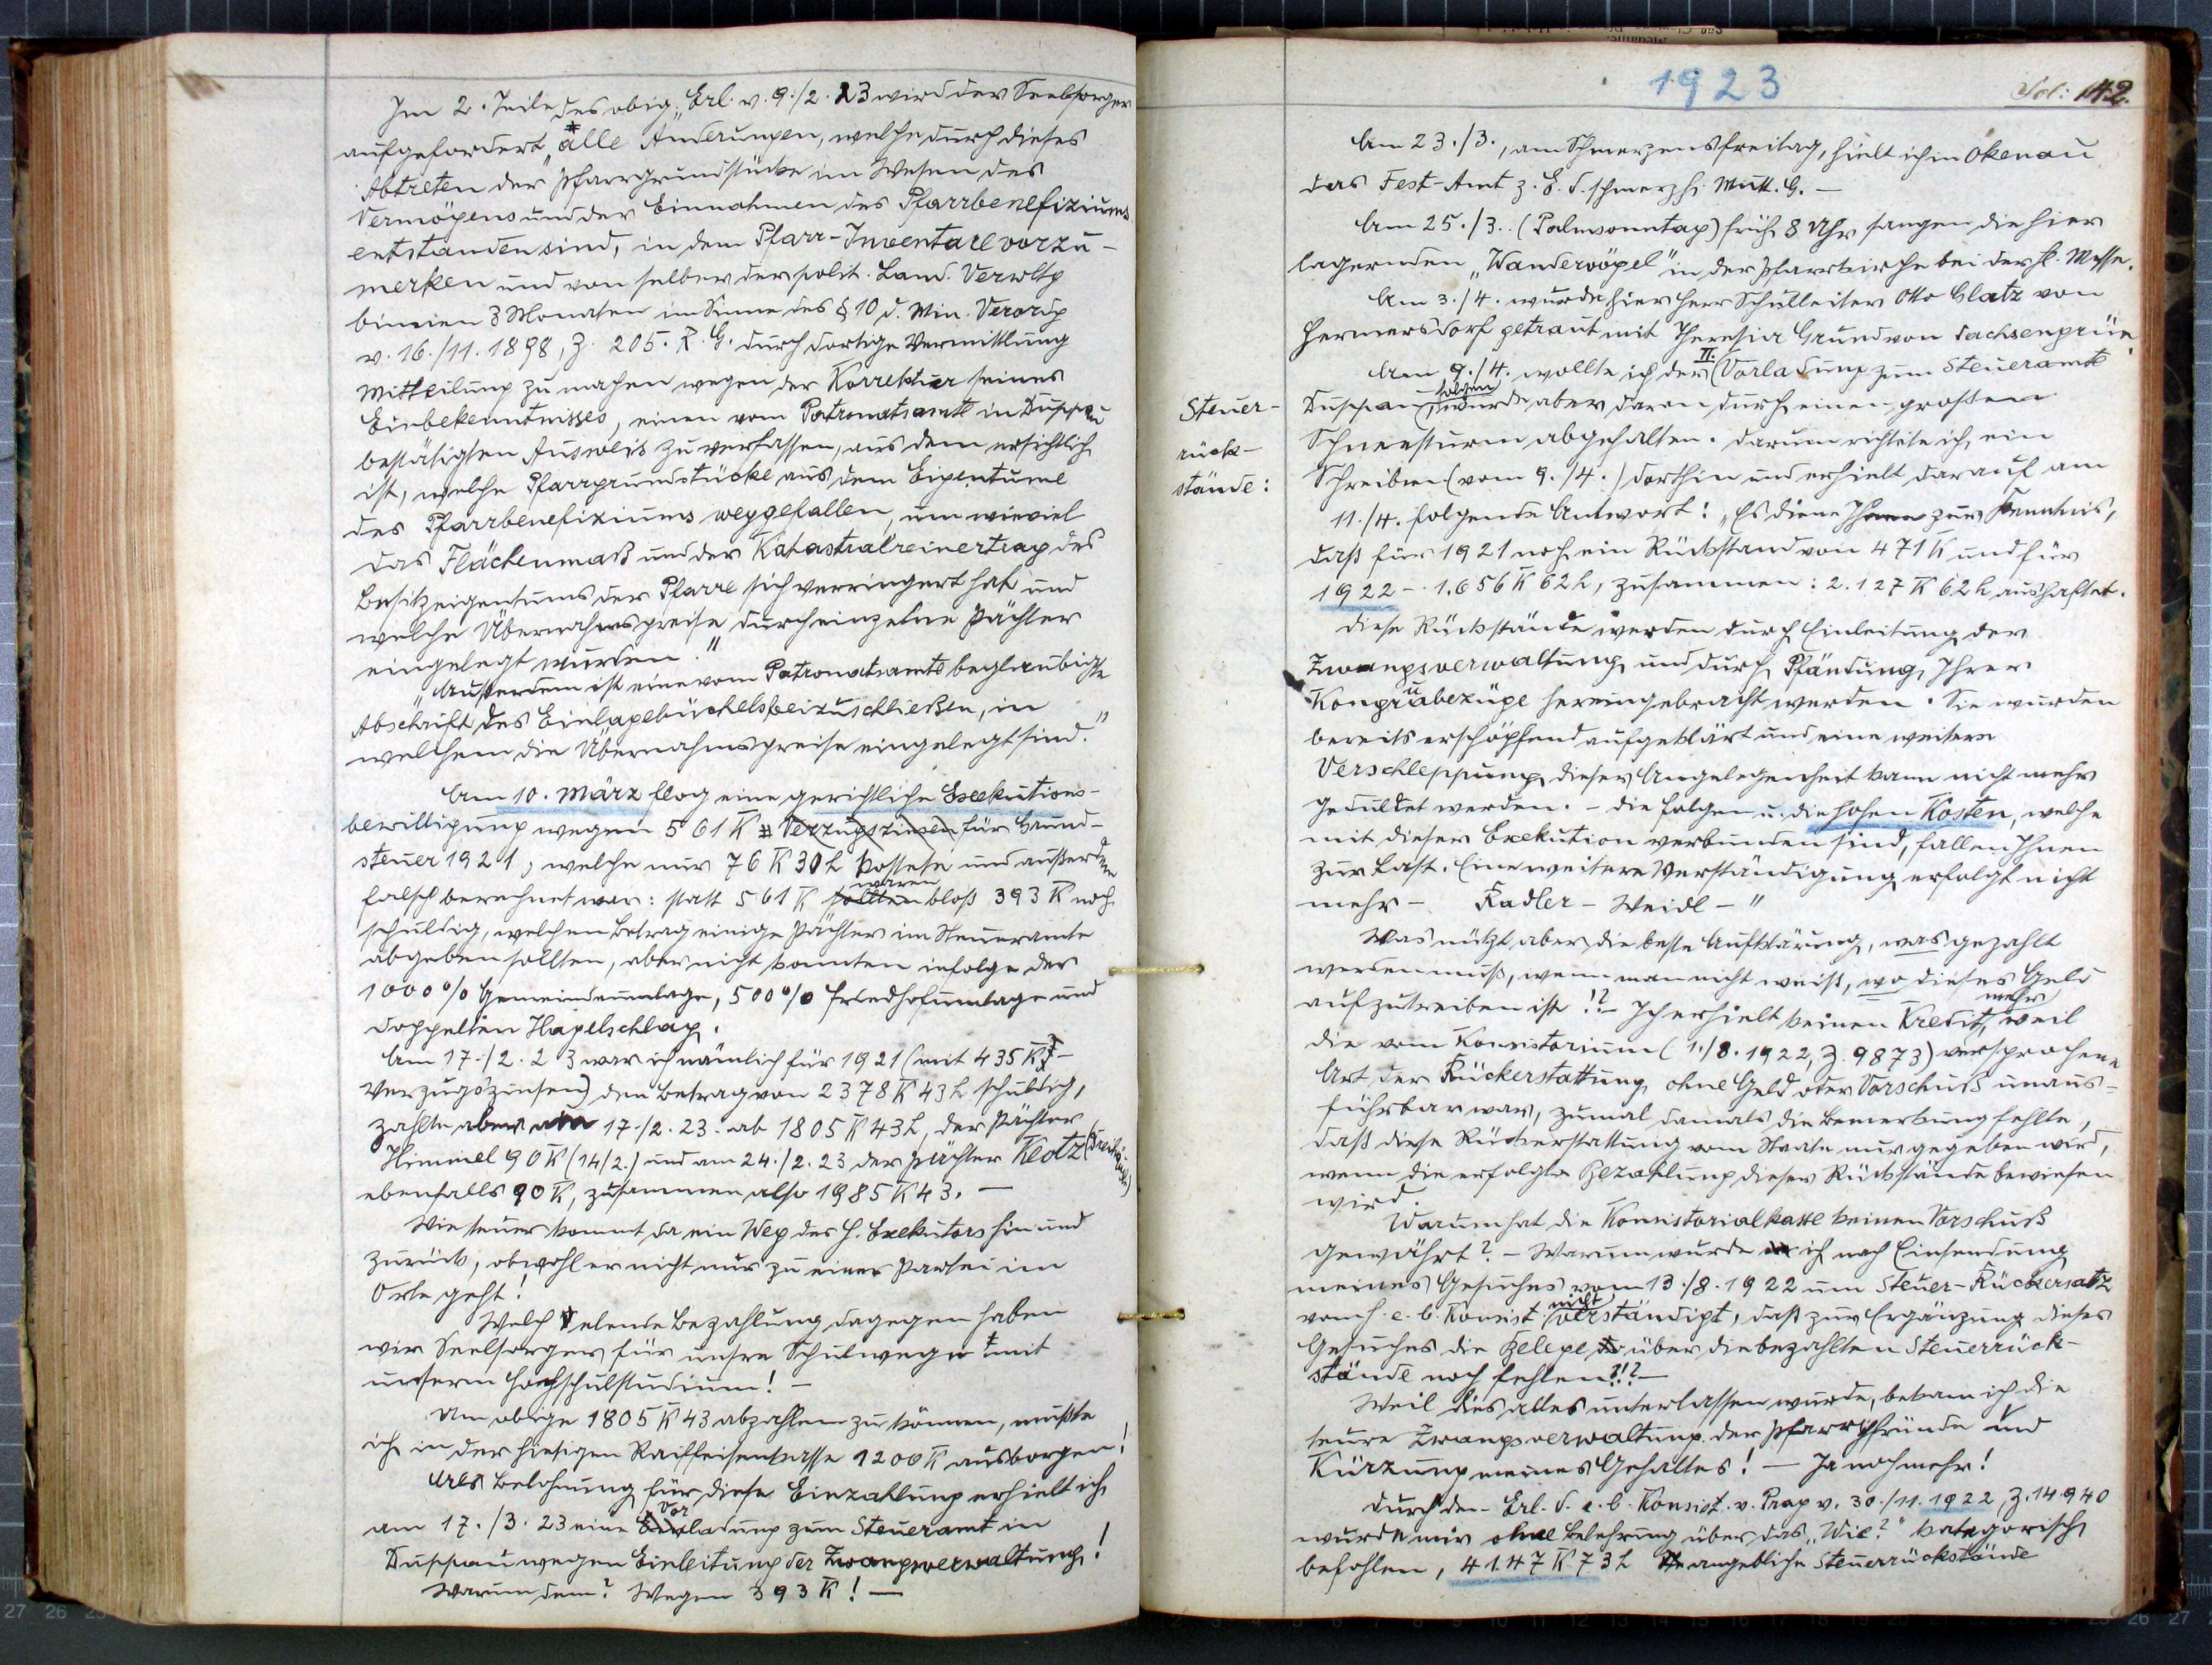 Im 2. Teile des obig. Erl. v. 9./2. 23 wird der Seelsorger
aufgefordert „alle Änderungen, welche durch dieses
Abtreten der Pfarrgrundstücke im Wesen des
Vermögens und der Einnahmen des Pfarrbenefiziums
entstanden sind, in dem Pfarr-Inventare vorzu-
merken und von selber der polit. Land. Verwltg
binnen 3 Monaten im Sinne des § 10 d. Min. Verordg
v. 16./11. 1898, Z. 205. R. G. durch dortige Vermittlung
Mitteilung zu machen wegen der Korrektur seines
Einbekenntnisses, einen vom Patronatsamte in Duppau
bestätigten Ausweis zu verfassen, aus dem ersichtlich
ist, welche Pfarrgrundstücke aus dem Eigentume
des Pfarrbenefiziums weggefallen, um wieviel
das Flächenmaß und der Katastralreinertrag des
Besitzeigentums der Pfarre sich verringert hat und
welche Übernahmspreise durch einzelne Pächter
eingelegt wurden."
„Außerdem ist eine vom Patronatsamte beglaubigte
Abschrift des Einlagebüchels beizuschließen, in
welchem die Übernahmspreise eingelegt sind."
Am 10. März flog eine gerichtliche Exekutions-
bewilligung wegen 561 K Verzugszinsen für Grund-
steuer 1921, welche nur 76 K 30 h kostete und außerdem
falsch berechnet war: statt 561 K sollten waren bloß 393 K noch
schuldig, welchen Betrag einige Pächter im Steueramte
abgeben sollten, aber nicht konnten infolge der
1000% Gemeindeumlage, 500% Friedhofumlage und
doppelten Hagelschlag.
Am 17./2. 23 war ich nämlich für 1921 (mit 435 K
Verzugszinsen) den Betrag von 2378 K 43 h schuldig,
zahlte aber am 17./2. 23. ab 1805 K 43 h, der Pächter
Himmel 90 K (14/2.) und am 24./2. 23 der Pächter Klotz
ebenfalls 90 K, zusammen also 1985 K 43. —
Wie teuer kommt da ein Weg des H. Exekutors hin und
zurück, obwohl er nicht nur zu einer Partei im
Orte geht!
Welch elende Bezahlung dagegen haben
wir Seelsorger für unsre Schulwege mit
unserm Hochschulstudium! —
Um obige 1805 K 43 abzahlen zu können, mußte
ich in der hiesigen Raiffeisenkasse 1200 K ausborgen!
Als Belohnung für diese Einzahlung erhielt ich
am 17./3. 23 eine Vorladung zum Steueramt in
Duppau wegen Einleitung der Zwangsverwaltung!
Warum denn? Wegen 393 K! —
1923
Fol: 142.
Am 23./3., am Schmerzensfreitag, hielt ich in Okenau
das Fest-Amt z. E. d. schmerzh. Mutt. G. —
Am 25./3. (Palmsonntag) früh 8 Uhr sangen die hier
lagernden „Wandervögel" in der Pfarrkirche bei der hl. Messe.
Am 3./4. wurde hier Herr Schulleiter Otto Glatz von
Hermersdorf getraut mit Theresia Grund von Sachsengrün.
Am 9./4. wollte ich der II. Vorladung zum Steueramte
Duppau folgen, wurde aber daran durch einen großen
Steuer-
rück-
stände:
Schneesturm abgehalten. Darum richtete ich ein
Schreiben (vom 9./4.) dorthin und erhielt darauf am
11./4. folgende Antwort: „Es diene Ihnen zur Kenntnis,
daß für 1921 noch ein Rückstand von 471 K und für
1922 – 1.656 K 62 h, zusammen: 2.127 K 62 h aushaftet.
Diese Rückstände werden durch Einleitung der
Zwangsverwaltung und durch Pfändung Ihrer
Kongruabezüge hereingebracht werden. Sie wurden
bereits erschöpfend aufgeklärt und eine weitere
Verschleppung dieser Angelegenheit kann nicht mehr
geduldet werden. – Die Folgen u. die hohen Kosten, welche
mit dieser Exekution verbunden sind, fallen Ihnen
zur Last. Eine weitere Verständigung erfolgt nicht
mehr – Kadler – Weidl – "
Was nützt aber die beste Aufklärung, was gezahlt
werden muß, wenn man nicht weiß, wo dieses Geld
aufzutreiben ist!? – Ich erhielt keinen Kredit mehr, weil
die vom Konsistorium (1./8. 1922, Z. 9873) versprochene
Art der Rückerstattung ohne Geld oder Vorschuß unaus-
führbar war, zumal damals die Bemerkung fehlte,
daß diese Rückerstattung vom Staate nur gegeben wird,
wenn die erfolgte Bezahlung dieser Rückstände bewiesen
wird.
Warum hat die Konsistorialkasse keinen Vorschuß
gewährt? – Warum wurde ich nach Einsendung
meines Gesuches vom 13./8. 1922 um Steuer-Rückersatz
vom h. e. b. Konsist. nicht verständigt, daß zur Ergänzung dieses
Gesuches die Belege über die bezahlten Steuerrück-
stände noch fehlen?!? —
Weil dies alles unterlassen wurde, bekam ich die
teure Zwangsverwaltung der Pfarrpfründe und
Kürzung meines Gehaltes! — Ja noch mehr!
Durch den Erl. d. e. b. Konsist. v. Prag v. 30./11. 1922, Z. 14.940
wurde mir ohne Belehrung über das „Wie?" kategorisch
befohlen, 4147 K 73 h angebliche Steuerrückstände